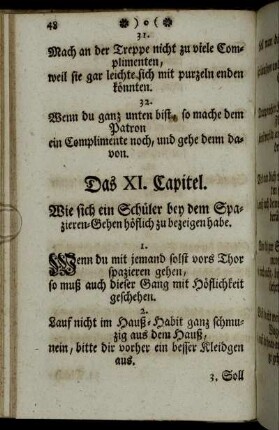 48 ❀ ) o ( ❀
31.
Mach an der Treppe nicht zu viele Com-
plimenten,
weil sie gar leichte sich mit purzeln enden
könnten.
32.
Wenn du ganz unten bist, so mache dem
Patron
ein Complimente noch, und gehe denn da-
von.
Das XI. Capitel.
Wie sich ein Schüler bey dem Spa-
zieren-Gehen höflich zu bezeigen habe.
1.
Wenn du mit jemand solst vors Thor
spazieren gehen,
so muß auch dieser Gang mit Höflichkeit
geschehen.
2.
Lauf nicht im Hauß-Habit ganz schmu-
zig aus dem Hauß,
nein, bitte dir vorher ein besser Kleidgen
aus.
3. Soll